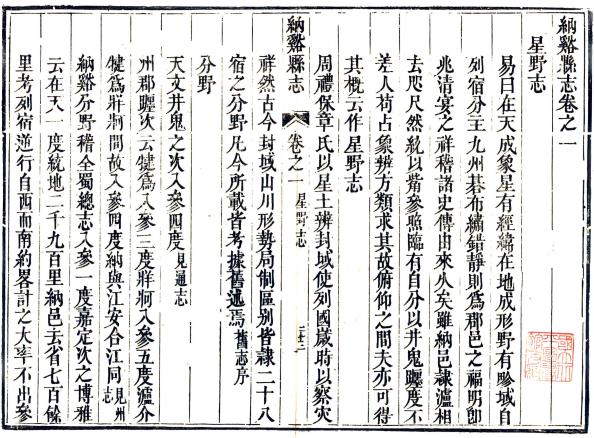 納谿縣志卷之一
星野志
易曰在天成象星有經緯在地成形野有畛域自
列宿分主九州碁布繡錯靜則爲郡邑之福明卽
兆清宴之祥稽諸史傳由來久矣雖納邑隷瀘相
去咫尺然統以觜參照臨有自分以井鬼躔度不
差人苟占象辨方類求其故俯仰之間夫亦可得
其概云作星野志
周禮保章氏以星土辨封域使列國歲時以察灾
祥然古今封域山川形勢局制區别皆隷二十八
宿之分野凡今所載皆考據舊述焉舊志序
分野
天文井鬼之次入參四度見通志
州郡躔次云犍爲入參三度牂牁入參五度瀘介
犍爲牂牁間故入參四度納與江安合江同見州志
納谿分野稽全蜀總志入參一度嘉定次之博雅
云在天一度統地二千九百里納邑去省七百餘
里考列宿逆行自西而南約畧計之大率不出參
納谿縣志
卷之一
星野志